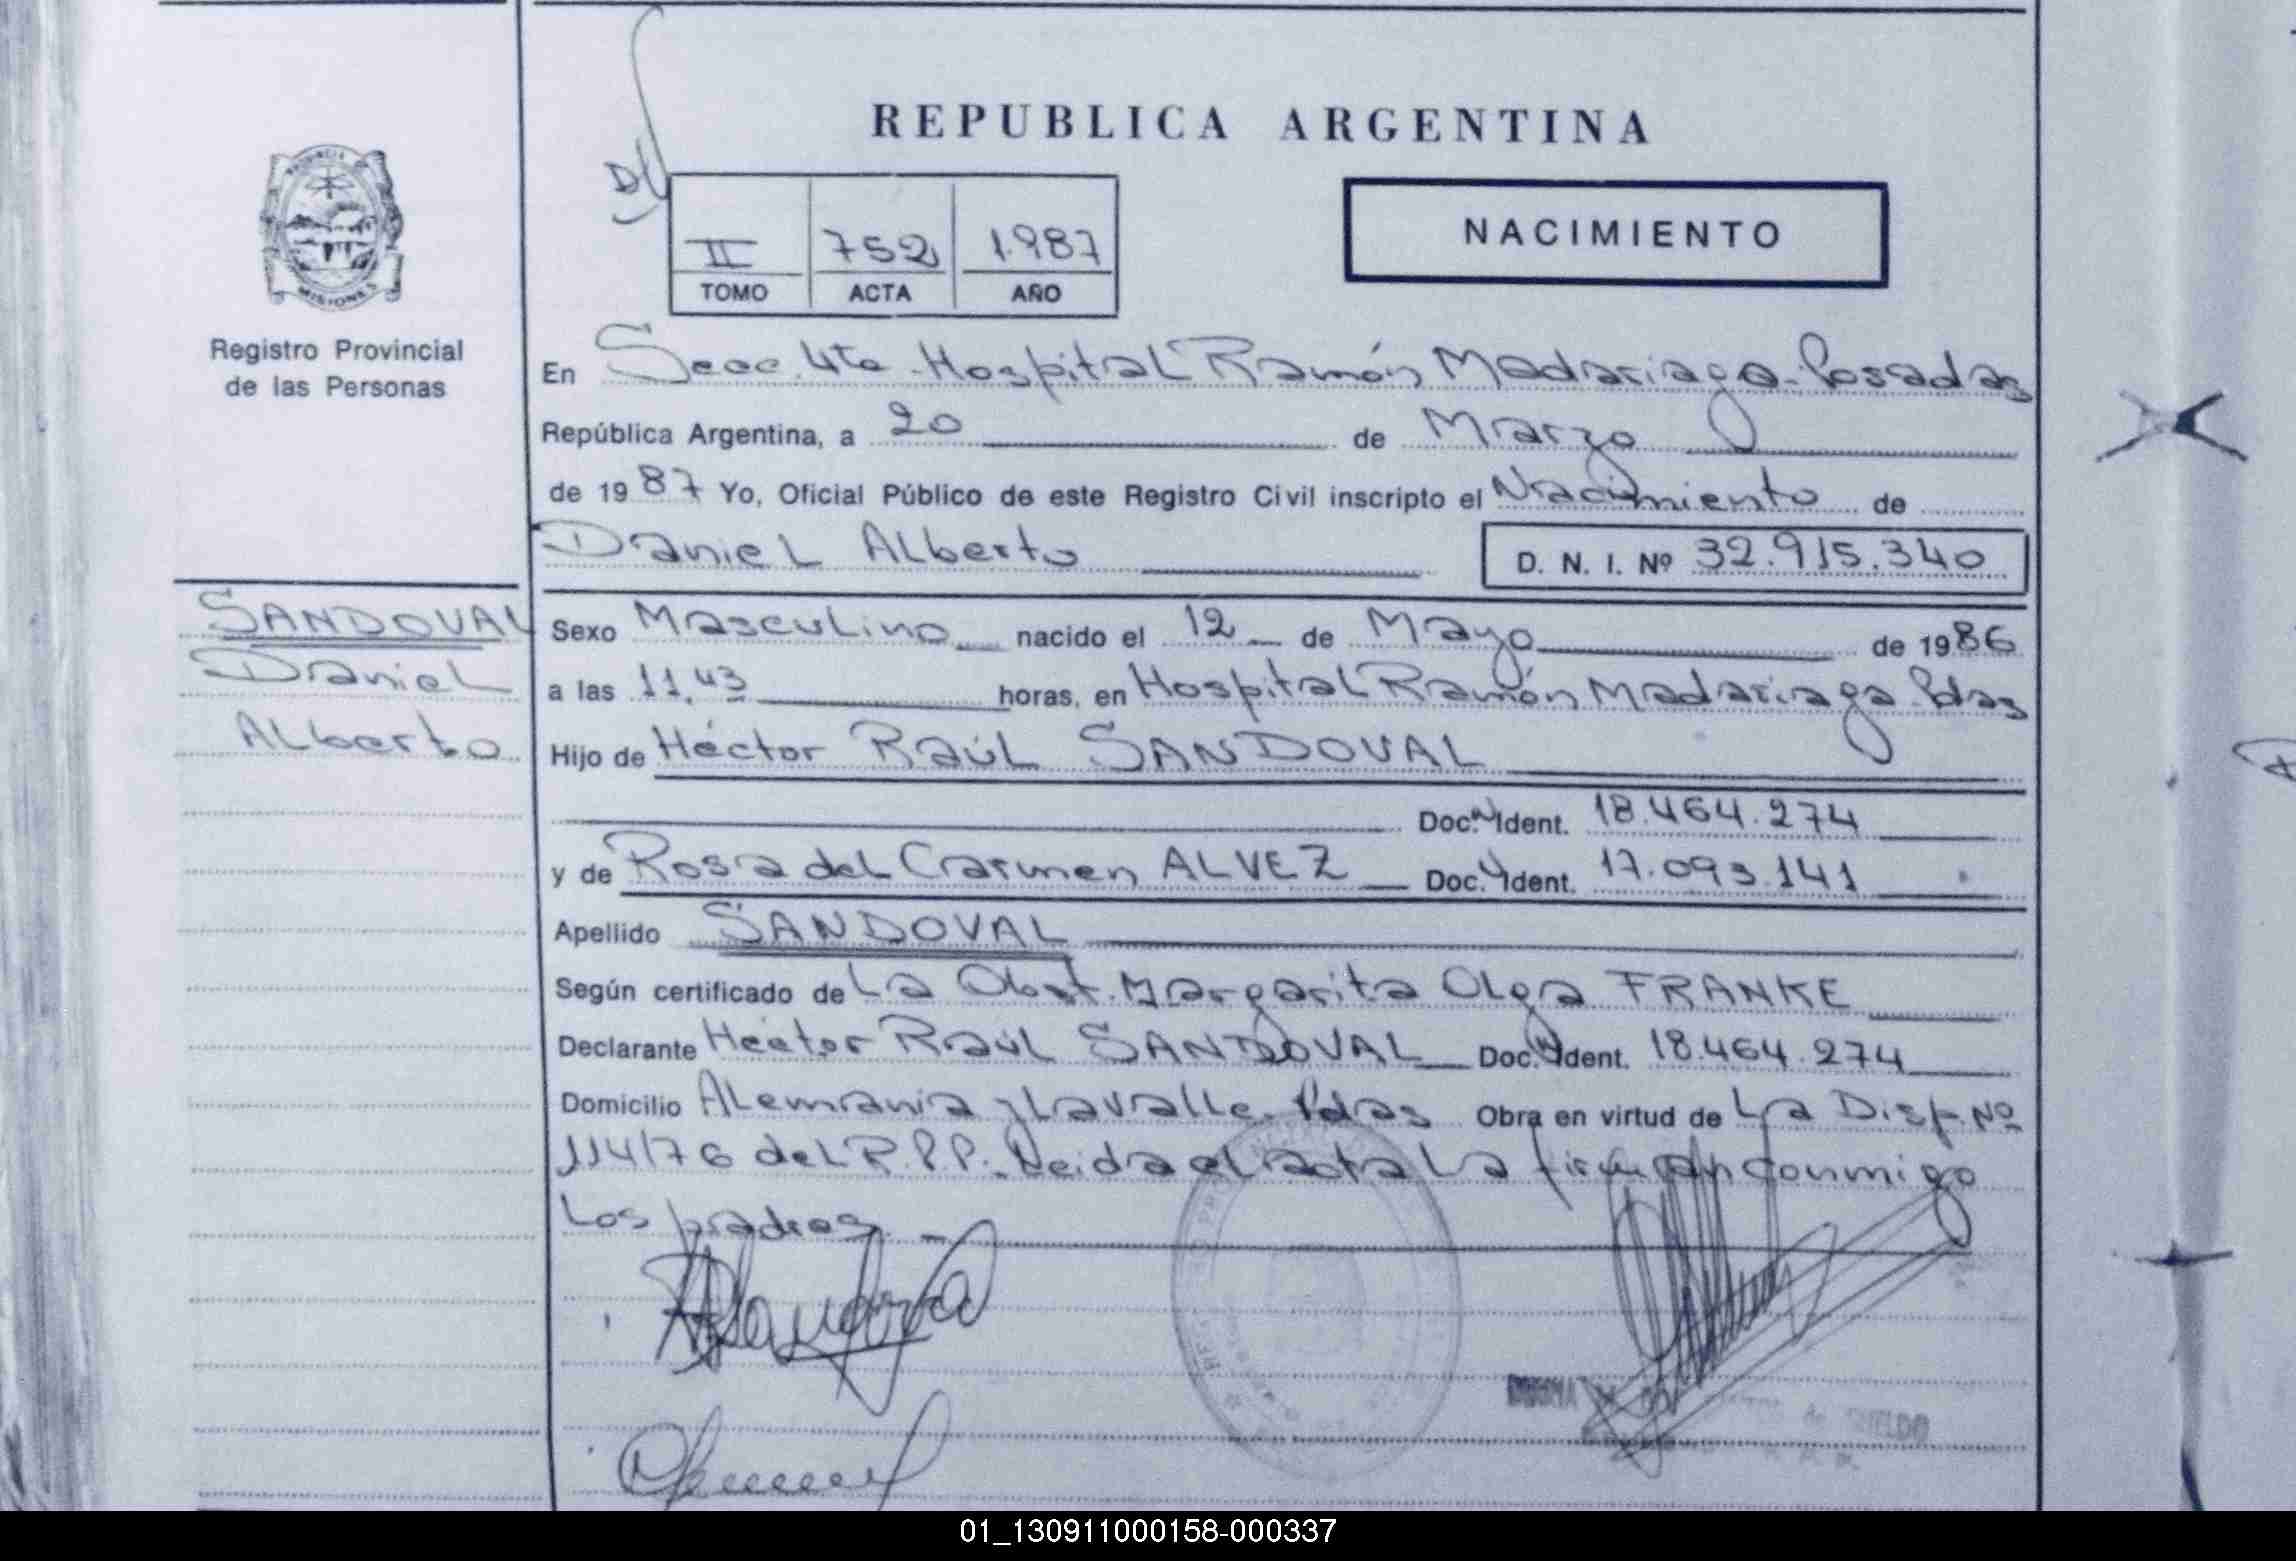 REPUBLICA ARGENTINA
PROVINCIA DE
MISIONES
Registro Provincial
de las Personas
II 752 1.987
TOMO ACTA AÑO
NACIMIENTO
En Secc. 4ta. Hospital Ramón Madariaga - Posadas
República Argentina, a 20 de Marzo
de 1987 Yo, Oficial Público de este Registro Civil inscripto el Nacimiento de
Daniel Alberto D. N. I. Nº 32.915.340
SANDOVAL
Daniel
Alberto
Sexo Masculino nacido el 12 de Mayo de 1986
a las 11,43 horas, en Hospital Ramón Madariaga Pdas
Hijo de Héctor Raúl SANDOVAL
Doc. Ident. 18.464.274
y de Rosa del Carmen ALVEZ Doc. Ident. 17.093.141
Apellido SANDOVAL
Según certificado de La Obst. Margarita Olga FRANKE
Declarante Héctor Raúl SANDOVAL Doc. Ident. 18.464.274
Domicilio Alemania y Lavalle. Pdas Obra en virtud de La Disp. Nº
114/76 del R.P.P. Leida el acta La firman conmigo
Los padres.
01_130911000158-000337